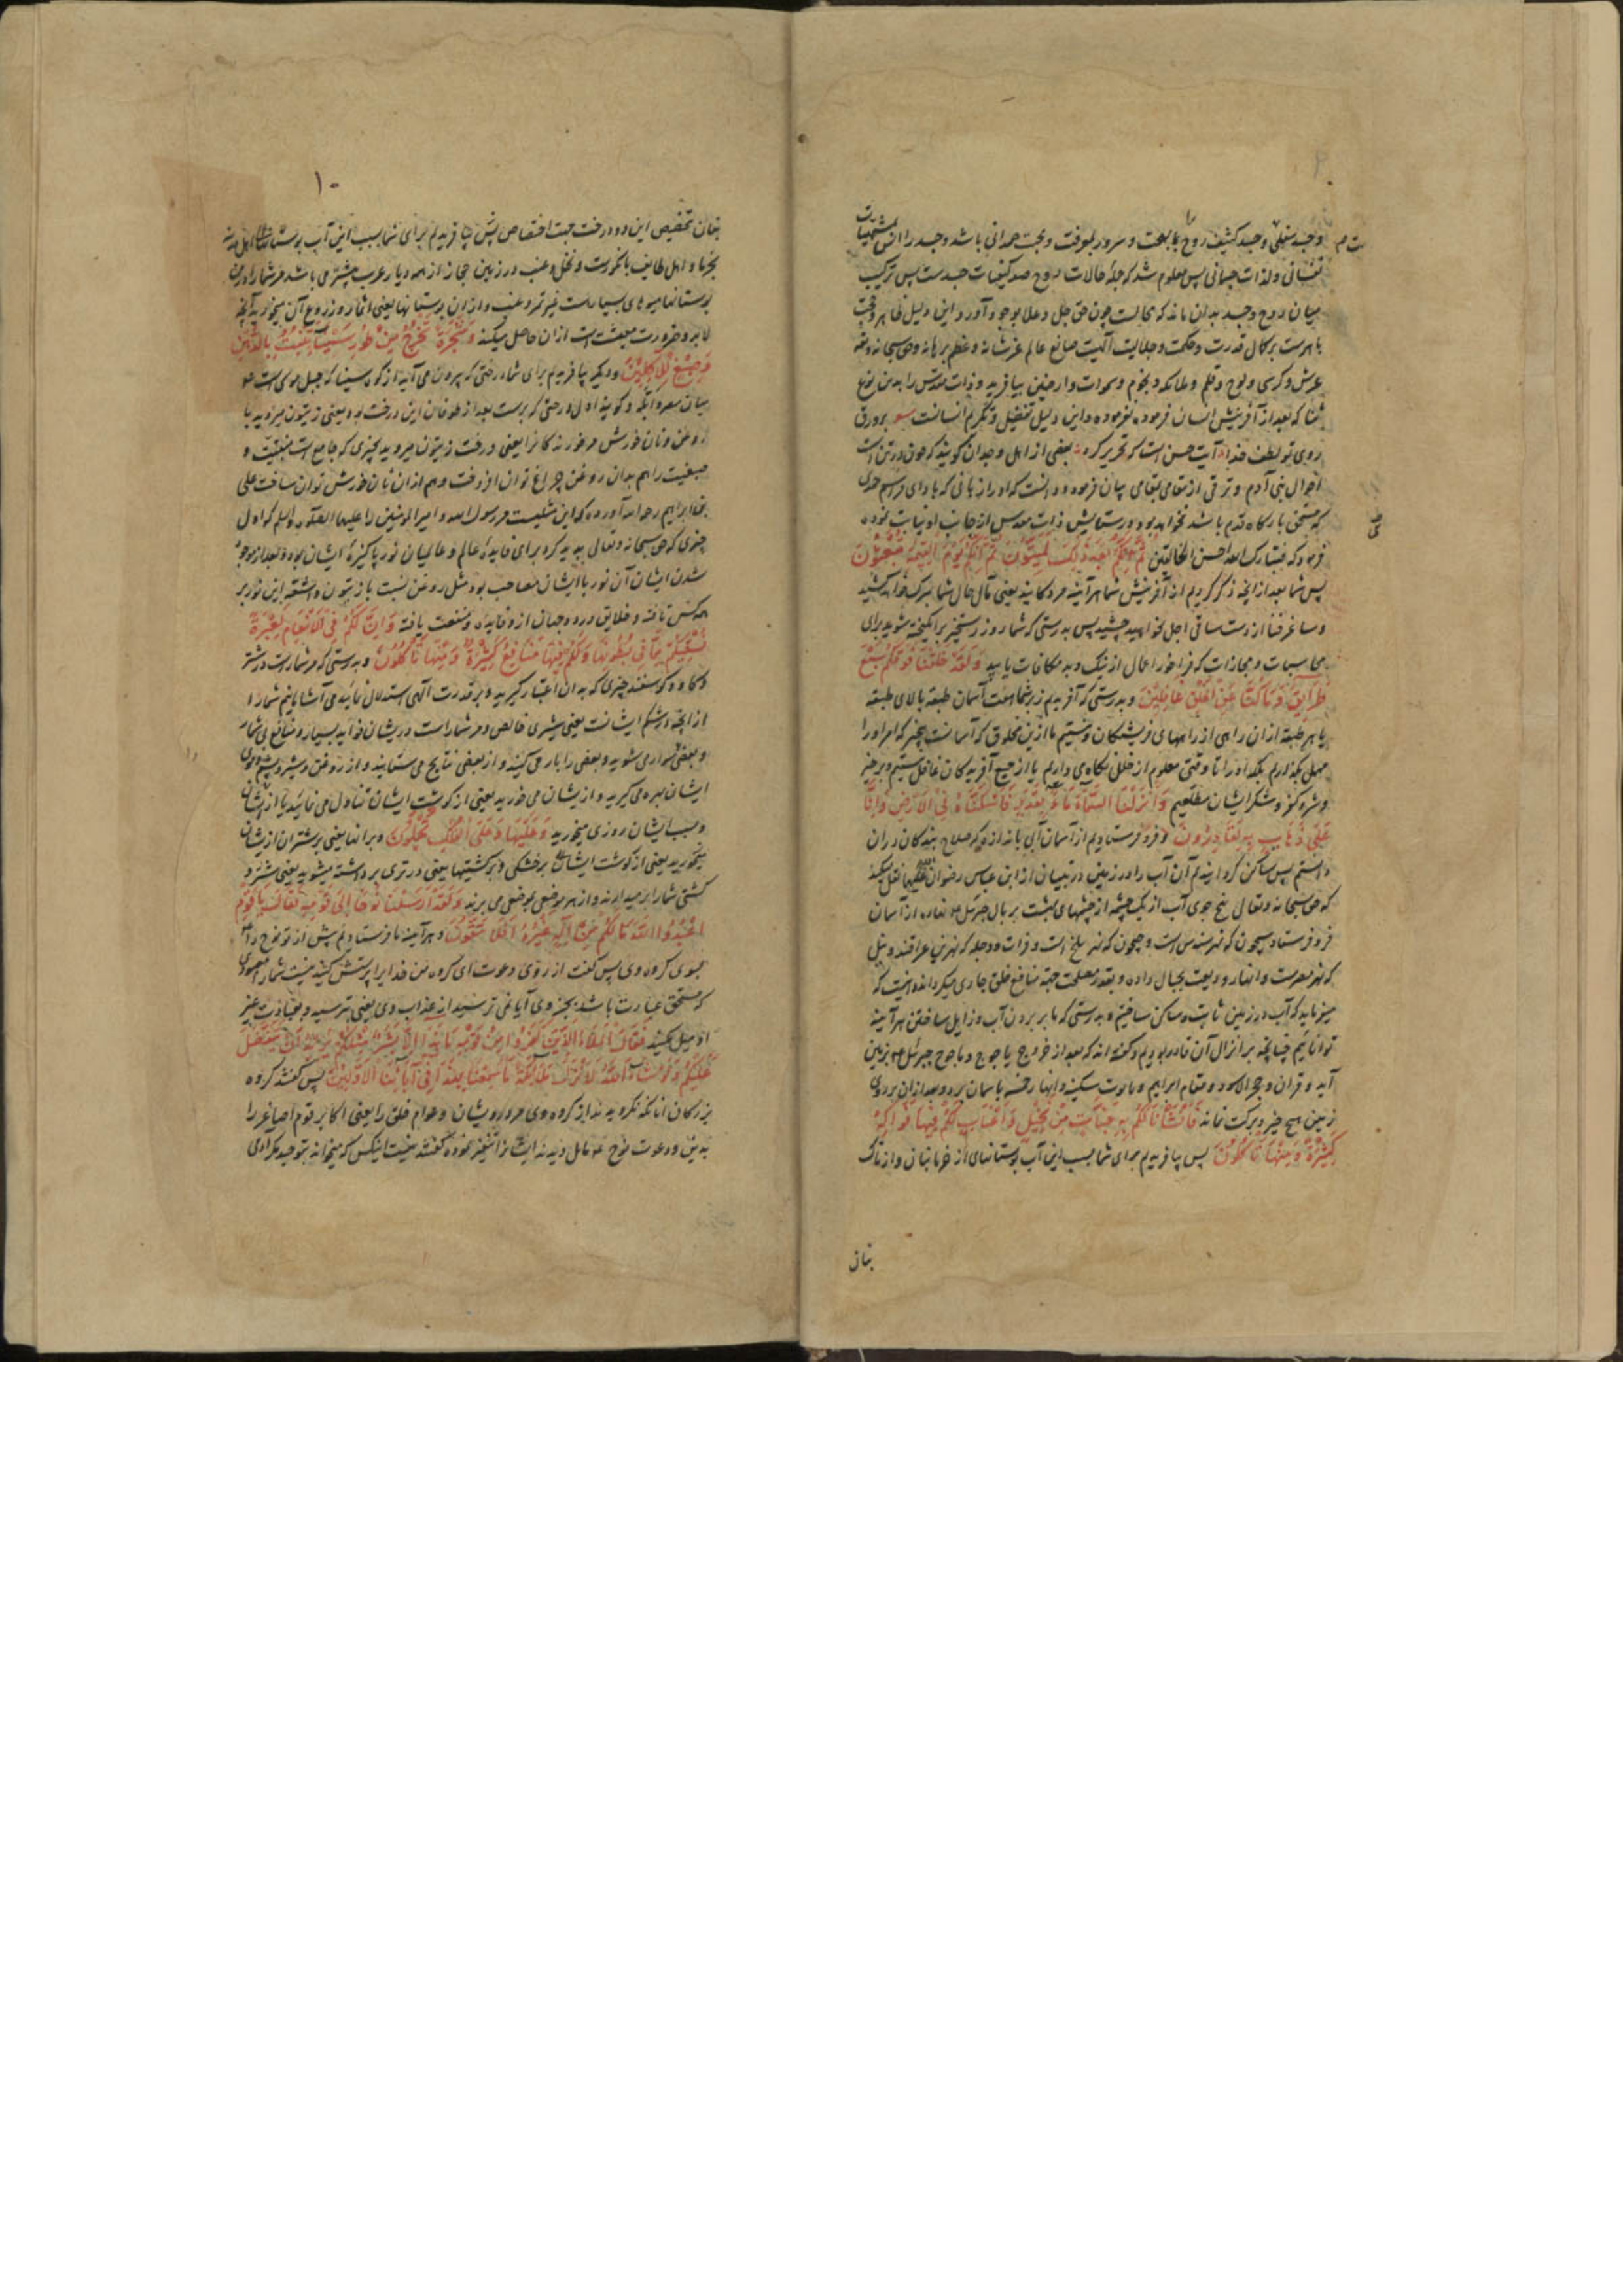 وجسد سفلی وجسد کثیف روح را بهجت و سرور بمعرفت و محبت صمدانی باشد و جسد را از مشتهیات
نفسانی و لذات جسمانی پس معلوم شد که جملهٔ حالات روح ضد کیفیات جسدست پس ترکیب
میان روح و جسد بدان ماند که محالست چون حق جل و علا بوجود آورد و این دلیل ظاهر و حجت
باهرست بر کمال قدرت و حکمت و جلالیت الهیت صانع عالم عز شانه و عظم برهانه و حق سبحانه و تعالی
عرش و کرسی و لوح و قلم و ملائکه و نجوم و سموات و ارضین بیافرید و ذات مقدس را بدین نوع
ثنا که بعد از آفرینش انسان فرموده نفرموده و این دلیل تفضیل و تکریم انسانست بر ورق
روی تو لطف خدا آیت حسن است که تحریر کرد بعضی از اهل وجدان گویند که چون درین آیت
احوال بنی آدم و ترقی از مقامی بمقامی بیان فرمود و دانست که او را زبانی که بادای مراسم حمدی
که مستحق بارگاه قدم باشد نخواهد بود در ستایش ذات مقدس از جانب او نیابت نموده
فرمود که فتبارک الله احسن الخالقین ثُمَّ إِنَّكُمْ بَعْدَ ذَلِكَ لَمَيِّتُونَ ثُمَّ إِنَّكُمْ يَوْمَ الْقِيَمَةِ تُبْعَثُونَ
پس شما بعد از آنچه ذکر کردیم از آفرینش شما هر آینه مردگانید یعنی مآل حال شما بمرگ خواهد کشید
و ساغر فنا از دست ساقی اجل خواهید چشید پس بدرستی که شما روز رستخیز برانگیخته شوید برای
محاسبات و مجازات که فراخور اعمال از نیک و بد مکافات یابید وَلَقَدْ خَلَقْنَا فَوْقَكُمْ سَبْعَ
طَرَائِقَ وَمَا كُنَّا عَنِ الْخَلْقِ غَافِلِينَ و بدرستی که آفریدیم زبر شما هفت آسمان طبقه بالای طبقه
یا هر طبقه ازان راهی از راههای فرشتگان و نیستیم ما ازین مخلوق که آسمانست بیخبر که امر او را
مهمل بگذاریم بلکه او را تا وقتی معلوم از خلل نگاه می داریم یا از جمیع آفریدگان غافل نیستیم و بر خیر
و شر و کفر و شکر ایشان مطلعیم وَأَنْزَلْنَا مِنَ السَّمَاءِ مَاءً بِقَدَرٍ فَأَسْكَنَّاهُ فِي الْأَرْضِ وَإِنَّا
عَلَى ذَهَابٍ بِهِ لَقَادِرُونَ و فرو فرستادیم از آسمان آبی باندازهٔ که صلاح بندگان دران
دانستم پس ساکن گردانیدیم آن آب را در زمین در تبیان از ابن عباس رضوان الله علیهما نقل میکند
که حق سبحانه و تعالی پنج جوی آب از یک چشمه از چشمهای بهشت بر بال جبرئیل نهاده از آسمان
فرو فرستاد سیحون که نهر هندست و جیحون که نهر بلخ است و فرات و دجله که نهرین عراقند و نیل
که نهر مصرست و انهار ودیعت بجبال داده و بقدر مصلحت جهة منافع خلق جاری میگرداند و اینست که
میفرماید که آب در زمین ثابت و ساکن ساختیم و بدرستی که ما بر بردن آب و زایل ساختن هر آینه
تواناییم چنانچه بر انزال آن قادر بودیم و گفته اند که بعد از خروج یاجوج و ماجوج جبرئیل بزمین
آید و قرآن و حجر الاسود و مقام ابراهیم و تابوت سکینه و انهار خمسه باسمان برد و بعد ازان بر روی
زمین هیچ خیر و برکت نماند فَأَنْشَأْنَا لَكُمْ بِهِ جَنَّاتٍ مِنْ نَخِيلٍ وَأَعْنَابٍ لَكُمْ فِيهَا فَوَاكِهُ
كَثِيرَةٌ وَمِنْهَا تَأْكُلُونَ پس بیافریدیم برای شما بسبب این آب بوستانهای از خرمابنان و از تاک
بنان
١٠
بنان تخصیص این دو درخت جهت اختصاص پس بیافریدیم برای شما بسبب این آب بوستانها اهل مدینه
بخرما و اهل طایف بانگورست و نخل و عنب در زمین حجاز از همه دیار عرب بیشتر می باشد مر شما را درین
بوستانها میوهای بسیارست غیر تمر و عنب و ازان بوستانها یعنی اثمار و زروع آن میخورید آنچه
لابد و ضرورت معیشت است ازان حاصل میکنند وَشَجَرَةً تَخْرُجُ مِنْ طُورِ سَيْنَاءَ تَنْبُتُ بِالدُّهْنِ
وَصِبْغٍ لِلْآكِلِينَ و دیگر بیافریدیم برای شما درختی که بیرون می آید از کوه سینا که جبل موسی است
میان مصر و ایله و گویند اول درختی که برست بعد از طوفان این درخت بود یعنی زیتون میروید با
روغن و نان خورش مر خورندگان را یعنی درخت زیتون میروید بچیزی که جامع است منفعت و
صبغیت را هم بدان روغن چراغ توان افروخت و هم ازان نان خورش توان ساخت علی
بن ابراهیم رحمه الله آورده که این مثلیست مر رسول الله و امیر المؤمنین را علیهما الصلوة و السلم که اول
چیزی که حق سبحانه و تعالی پدید کرد برای فایدهٔ عالم و عالمیان نور پاکیزهٔ ایشان بود و بعد از موجود
شدن ایشان آن نور با ایشان مصاحب بود مثل روغن نسبت با زیتون و اشعهٔ این نور بر
همه کس تافته و خلایق در دو جهان ازو فایده و منفعت یافته وَإِنَّ لَكُمْ فِي الْأَنْعَامِ لَعِبْرَةً
نُسْقِيكُمْ مِمَّا فِي بُطُونِهَا وَلَكُمْ فِيهَا مَنَافِعُ كَثِيرَةٌ وَمِنْهَا تَأْكُلُونَ و بدرستی که مر شماراست در شتر
و گاو و گوسفند چیزی که بدان اعتبار گیرید و بر قدرت الهی استدلال نمائید می آشامانیم شما را
از آنچه در شکم ایشانست یعنی شیری خالص و مر شماراست در ایشان فواید بسیار و منافع بی شمار
و بعضی سوار می شوید و بعضی را بار می کنید و از بعضی نتایج می ستانید و از روغن و شیر و پشم و موی
ایشان بهره می گیرید و ازیشان می خورید یعنی از گوشت ایشان تناول می نمایید یا از ایشان
و بسبب ایشان روزی میخورید وَعَلَيْهَا وَعَلَى الْفُلْكِ تُحْمَلُونَ و بر انها یعنی بر شتران ازیشان
میخورید یعنی از گوشت ایشان بر خشکی و بر کشتیها یعنی در تری برداشته میشوید یعنی شتر و
کشتی شما را برمیدارند و از هر موضعی بموضعی می برند وَلَقَدْ أَرْسَلْنَا نُوحًا إِلَى قَوْمِهِ فَقَالَ يَا قَوْمِ
اعْبُدُوا اللَّهَ مَا لَكُمْ مِنْ إِلَهٍ غَيْرُهُ أَفَلَا تَتَّقُونَ و هر آینه ما فرستادیم پیش از تو نوح را
بسوی گروه وی پس گفت از روی دعوت ای گروه من خدایرا پرستش کنید نیست شما را معبودی
که مستحق عبادت باشد بجز وی آیا نمی ترسید از عذاب وی یعنی بترسید و بعبادت غیر
او میل مکنید فَقَالَ الْمَلَأُ الَّذِينَ كَفَرُوا مِنْ قَوْمِهِ مَا هَذَا إِلَّا بَشَرٌ مِثْلُكُمْ يُرِيدُ أَنْ يَتَفَضَّلَ
عَلَيْكُمْ وَلَوْ شَاءَ اللَّهُ لَأَنْزَلَ مَلَائِكَةً مَا سَمِعْنَا بِهَذَا فِي آبَائِنَا الْأَوَّلِينَ پس گفتند گروه
بزرگان انانکه نگرویدند از گروه وی مر درویشان و عوام خلق را یعنی اکابر قوم اصاغر را
بدین و دعوت نوح مایل دیدند ایشانرا تنفیر نموده گفتند نیست اینکس که میخواند بتوحید مگر ادمی